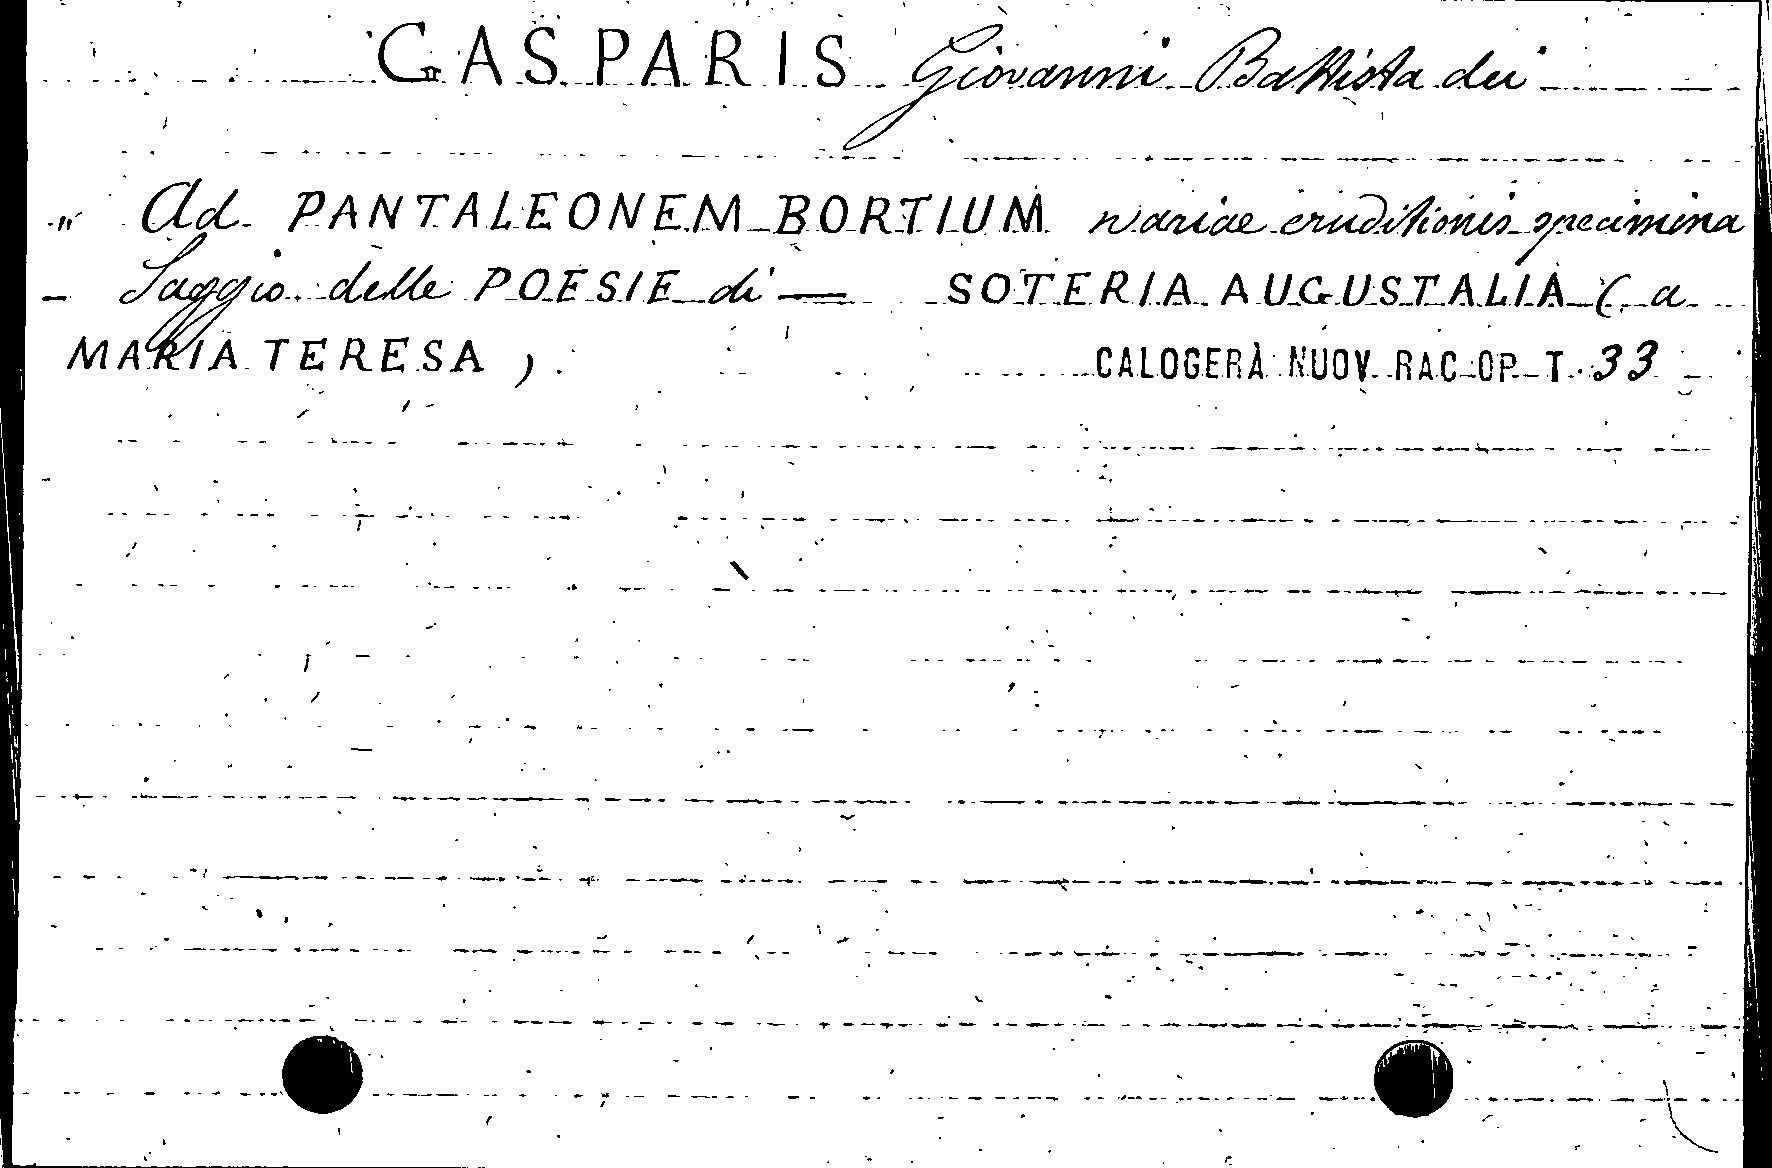 GASPARIS Giovanni Battista dei
„ Ad PANTALEONEM BORTIUM variae eruditionis specimina
- Saggio delle POESIE di — SOTERIA AUGUSTALIA ( a
MARIA TERESA ) . CALOGERÀ NUOV. RAC OP. T. 33